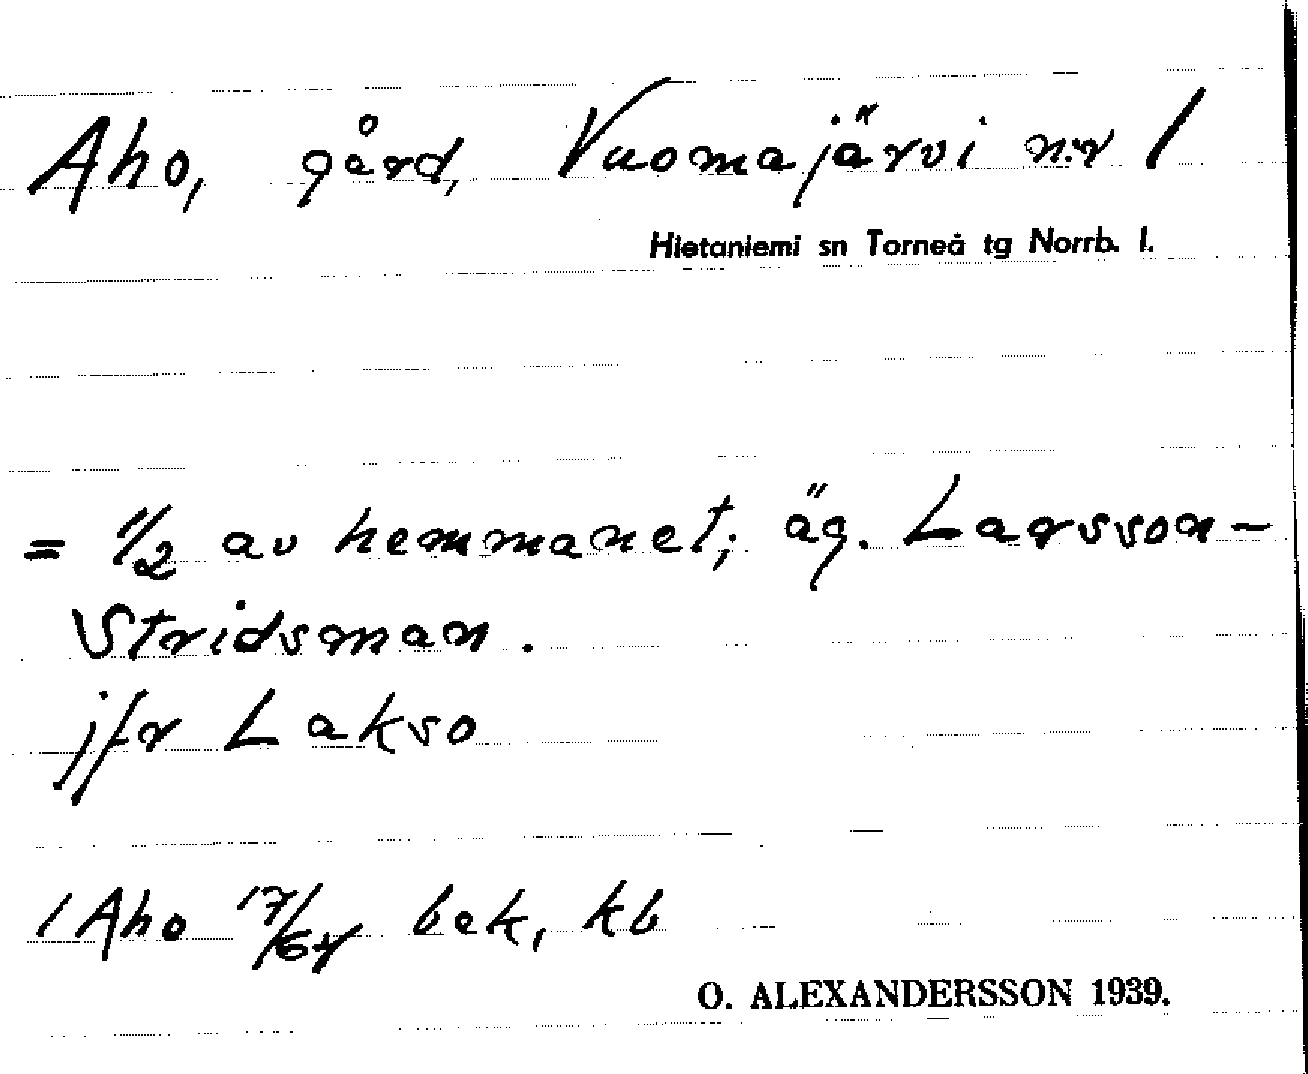 Aho, gård, Vuomajärvi n:r 1
Hietaniemi sn Torneå tg Norrb. l.
= 1/2 av hemmanet; äg. Larsson-
Stridsman.
jfr Lakso
1 Aho 17/64 bek, kb
O. ALEXANDERSSON 1939.